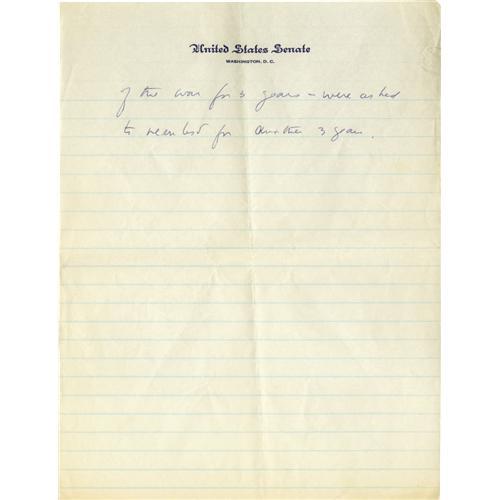 United States Senate
WASHINGTON, D. C.
of the war for 3 years – were asked
to reenlist for another 3 years.